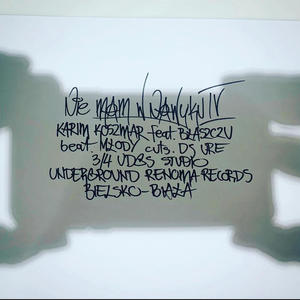 NIE MAM W ZWYCZAJU IV
KARIM KOSZMAR feat. BŁASZCZU
beat. MŁODY cuts. DJ URE
3/4 UDGS STUDIO
UNDERGROUND RENOMA RECORDS
BIELSKO-BIAŁA